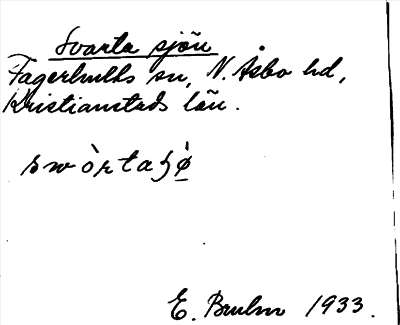 Svarta sjön
Fagerhults sn, N. Åsbo hd,
Kristianstads län.
swòrtaʂø̀
E. Bruhn 1933.